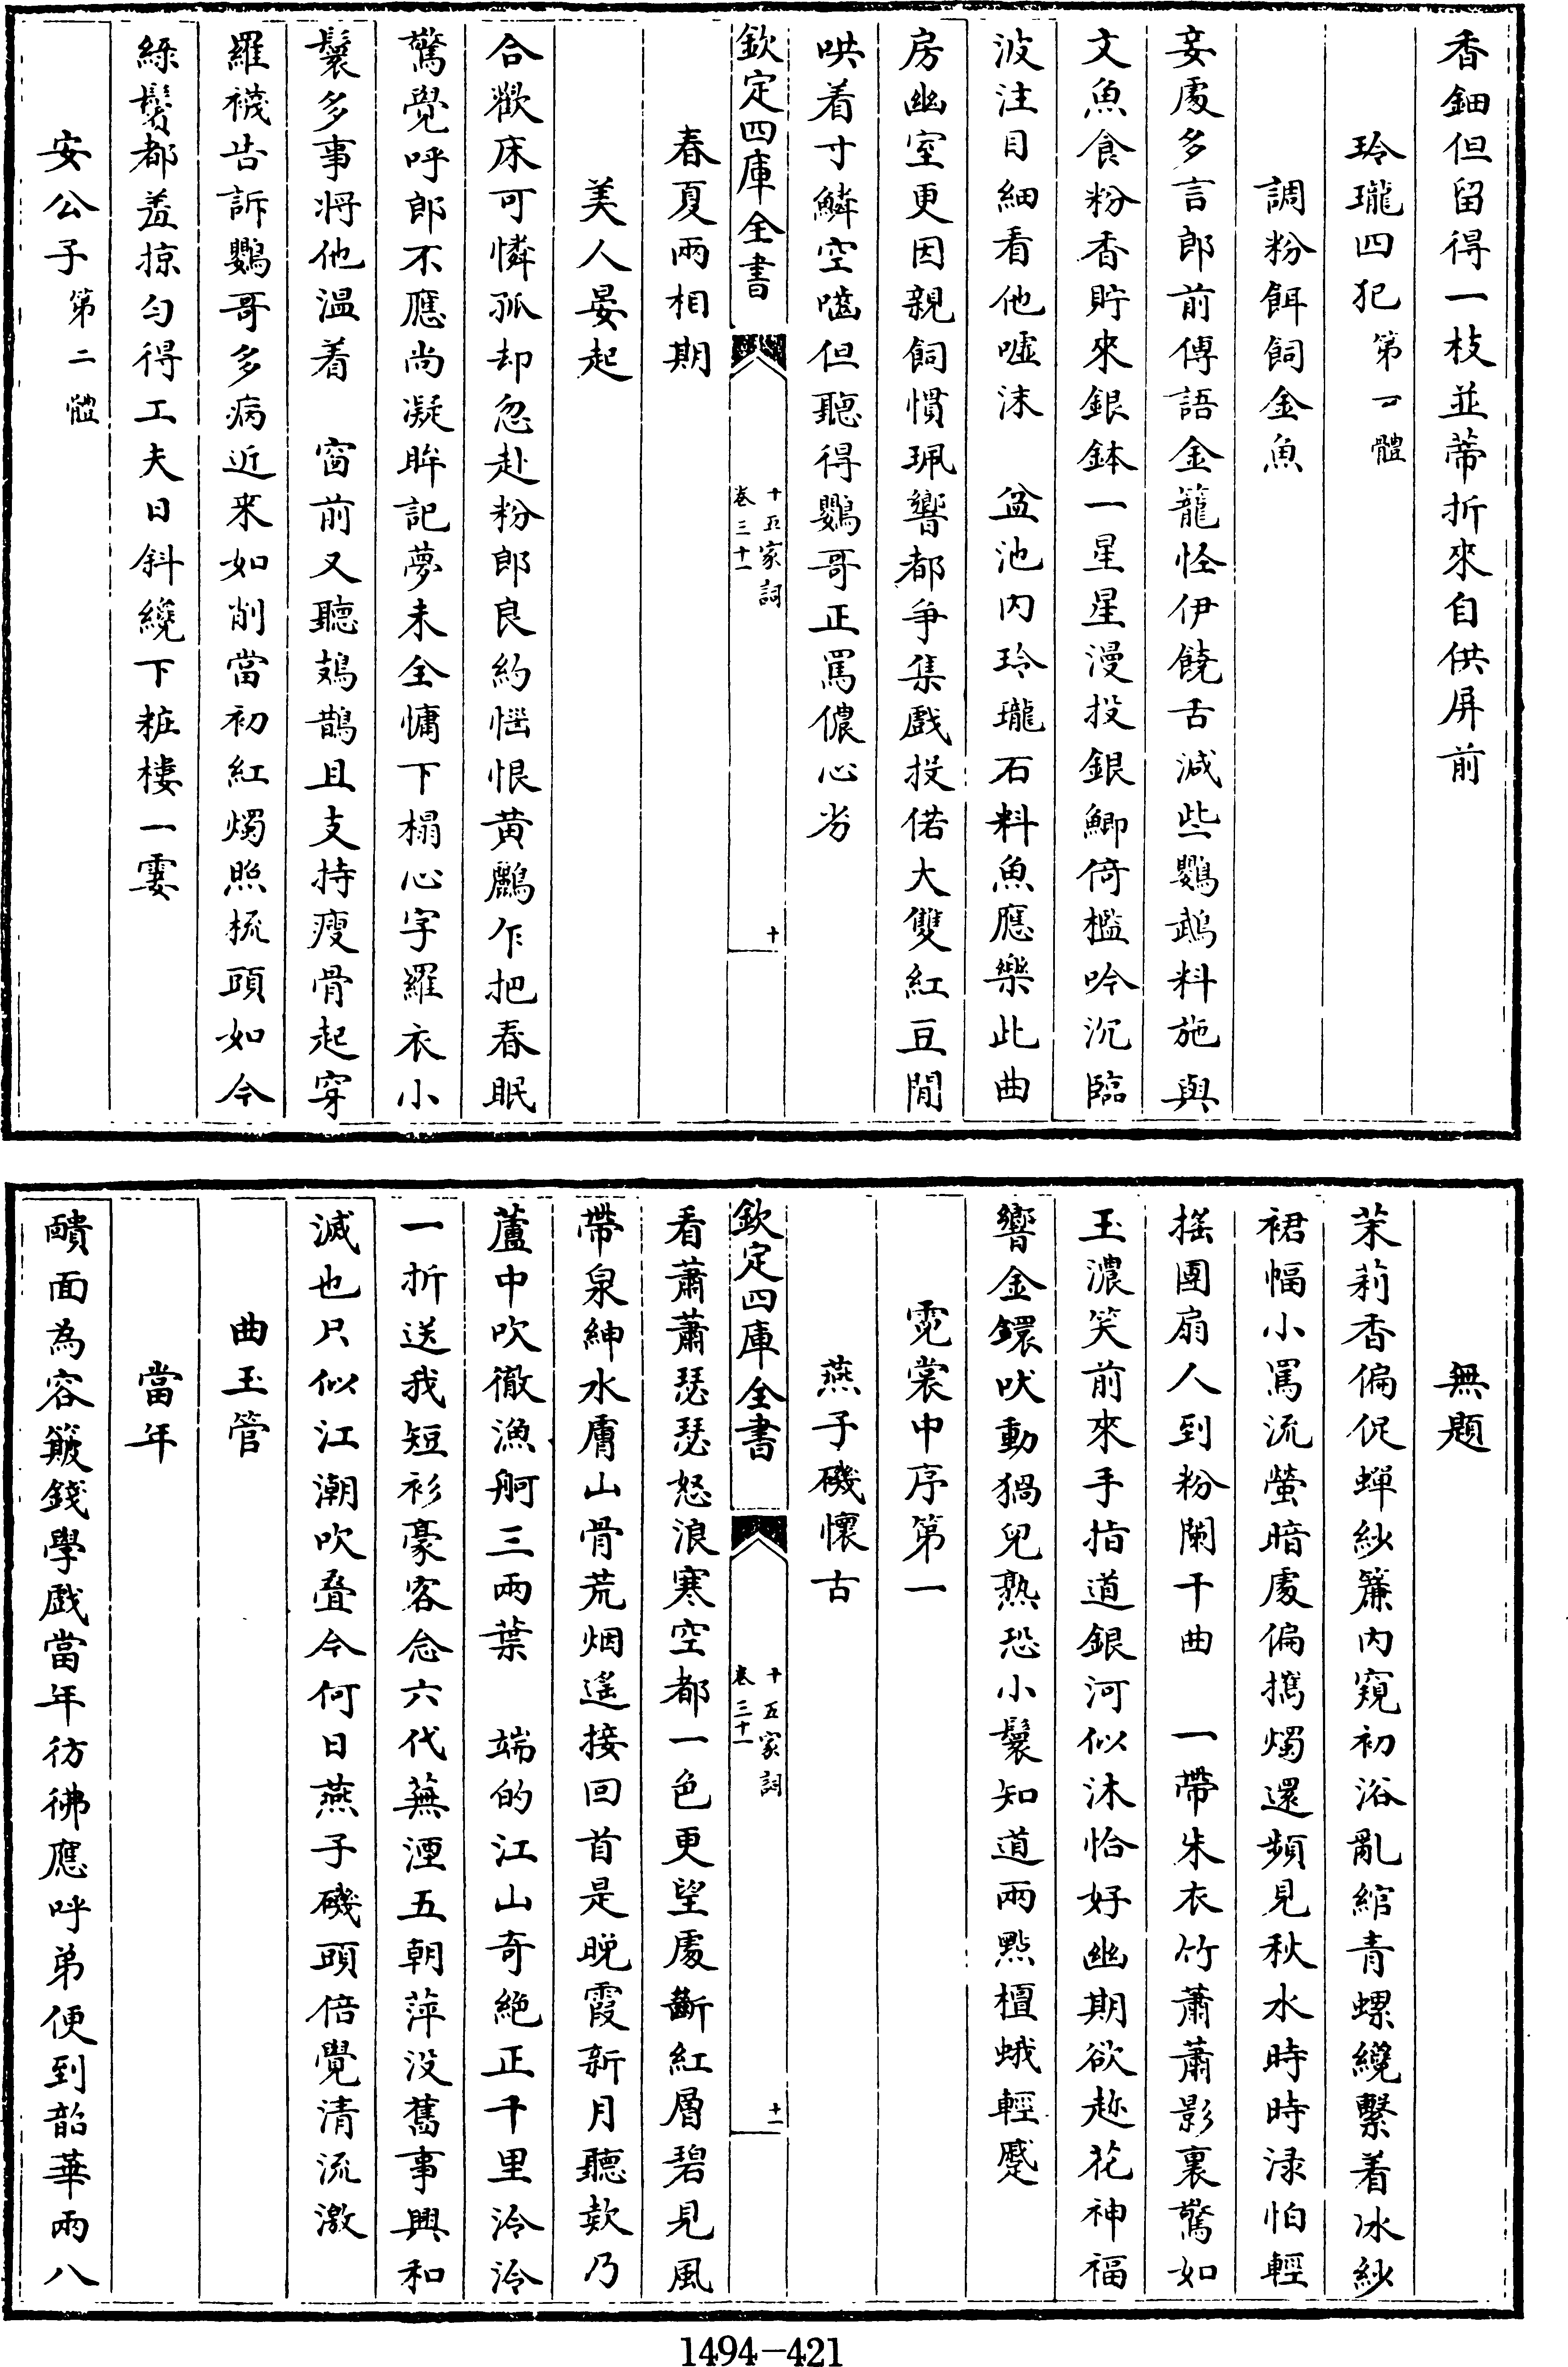 香鈿但留得一枝並蒂折來自供屏前
玲瓏四犯第 體
調粉餌飼金魚
妾處多言郎前傳語金籠怪伊饒舌減些鸚鵡料施與
文魚食粉香貯來銀鉢一星星漫投銀鯽倚檻吟沉臨
波注目細看他噓沫 盆池内玲瓏石料魚應樂此曲
房幽室更因親飼慣珮響都爭集戲投偌大雙紅豆閒
哄着寸鱗空嚙但聽得鸚哥正罵儂心劣
欽定四庫全書
十五家詞
卷三十一
十
春夏兩相期
美人晏起
合歡床可憐孤却忽赴粉郎良約惱恨黄鸝乍把春眠
驚覺呼郎不應尚凝眸記夢未全慵下榻心字羅衣小
鬟多事將他温着 窗前又聽鴂鵲且支持瘦骨起穿
羅襪告訴鸚哥多病近来如削當初紅燭照梳頭如今
綠鬢都羞掠匀得工夫日斜纔下粧樓一霎
安公子第二體
無題
茉莉香偏促蟬紗簾内窺初浴亂綰青螺纔繫着冰紗
裙幅小罵流螢暗處偏攜燭還頻見秋水時時渌怕輕
摇團扇人到粉闌干曲 一帶朱衣竹蕭蕭影裏驚如
玉濃笑前來手指道銀河似沐恰好幽期欲趂花神福
響金鐶吠動猧兒熟恐小鬟知道兩㸃檀蛾輕蹙
霓裳中序第一
燕子磯懷古
欽定四庫全書
十五家詞
卷三十一
十一
看蕭蕭瑟瑟怒浪寒空都一色更望處斷紅層碧見風
帶泉紳水膚山骨荒烟遥接回首是晚霞新月聽欸乃
蘆中吹徹漁舸三兩葉 端的江山奇絶正千里泠泠
一折送我短衫豪客念六代蕪湮五朝萍没舊事興和
滅也只似江潮吹叠今何日燕子磯頭倍覺清流激
曲玉管
當年
靧面為容簸錢學戲當年彷彿應呼弟便到韶華兩八
1494-421